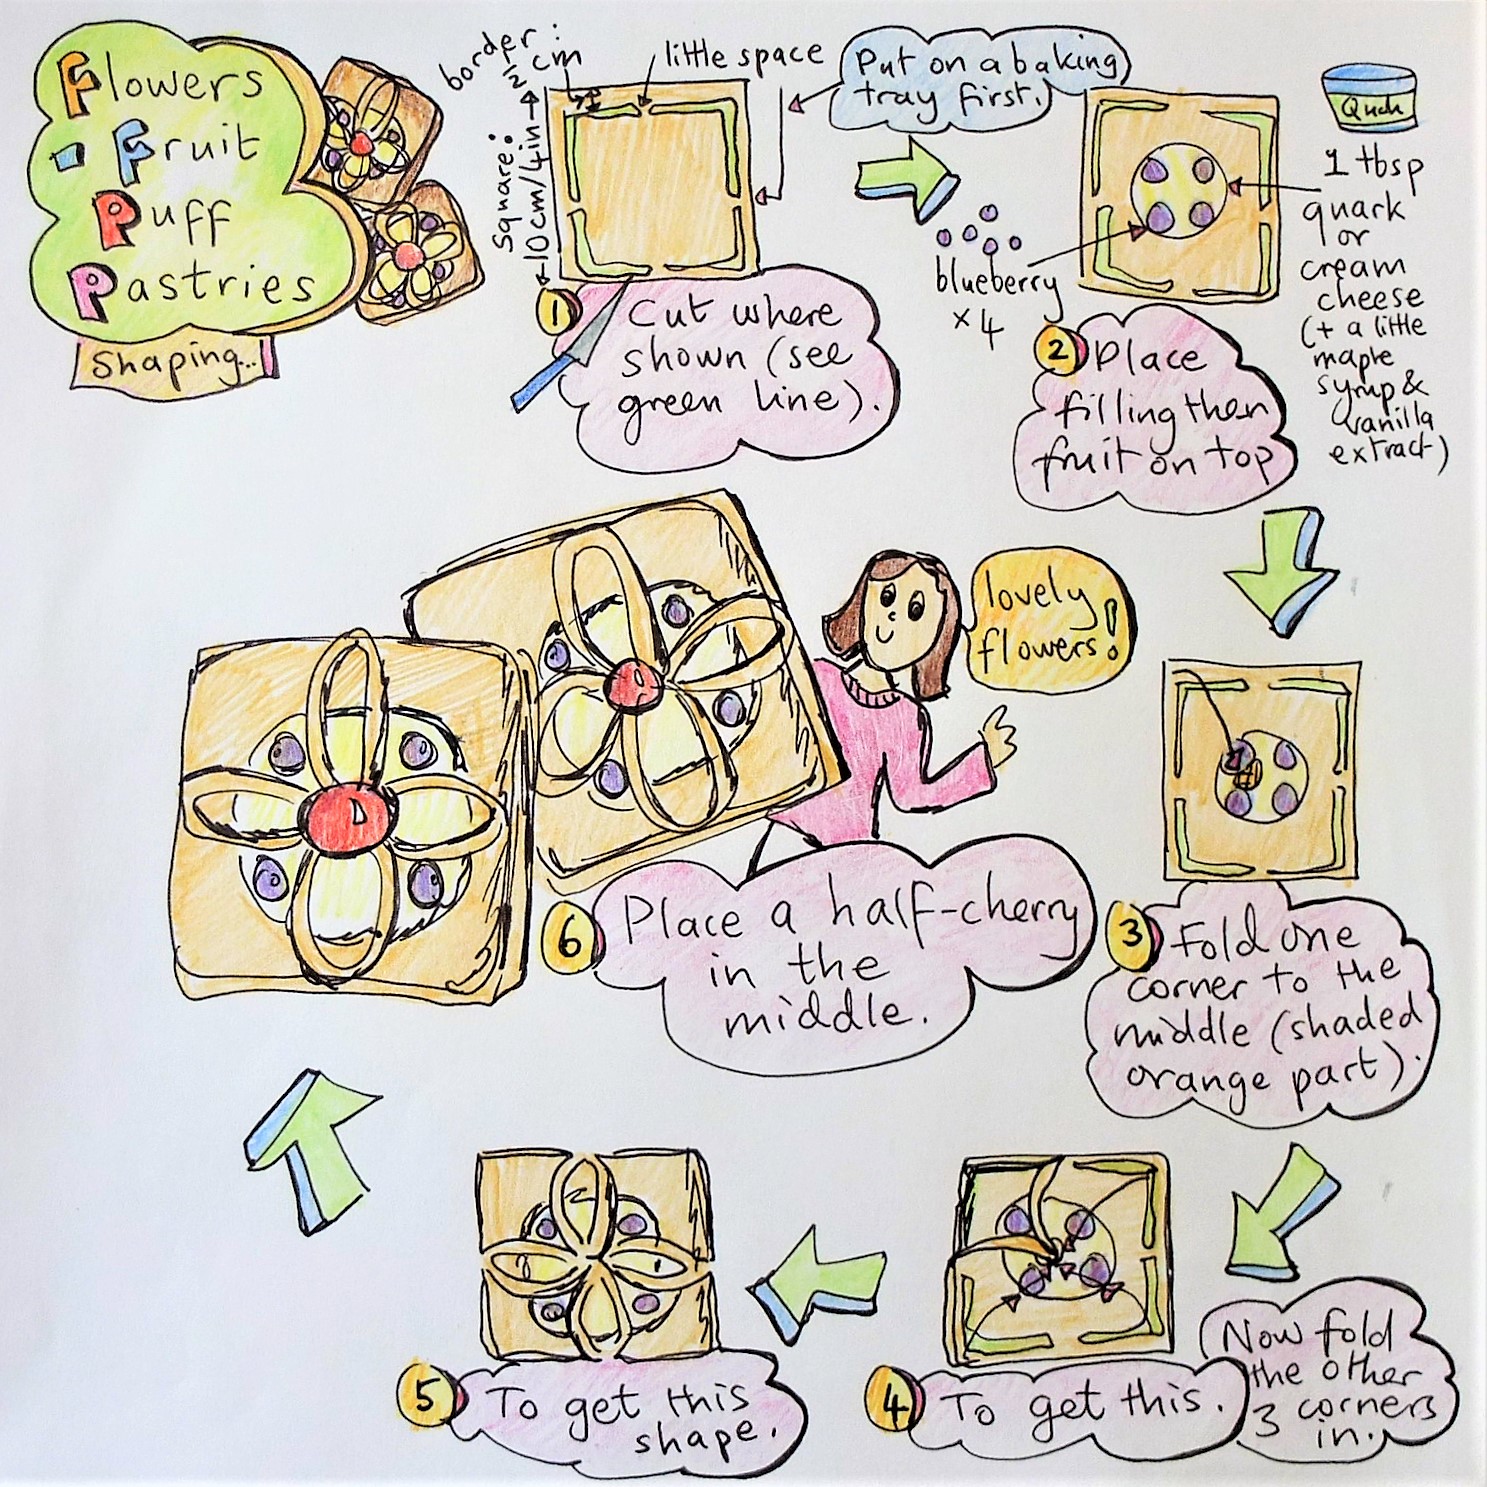 Flowers
- Fruit
Puff
Pastries
Shaping...
border:
½ cm
little space
Square:
10cm/4in
Put on a baking
tray first.
1
Cut where
shown (see
green line).
blueberry
x 4
Quark
1 tbsp
quark
or
cream
cheese
(+ a little
maple
syrup &
vanilla
extract)
2
Place
filling then
fruit on top
3
Fold one
corner to the
middle (shaded
orange part).
4
To get this.
Now fold
the other
3 corners
in.
5
To get this
shape.
6
Place a half-cherry
in the
middle.
lovely
flowers!